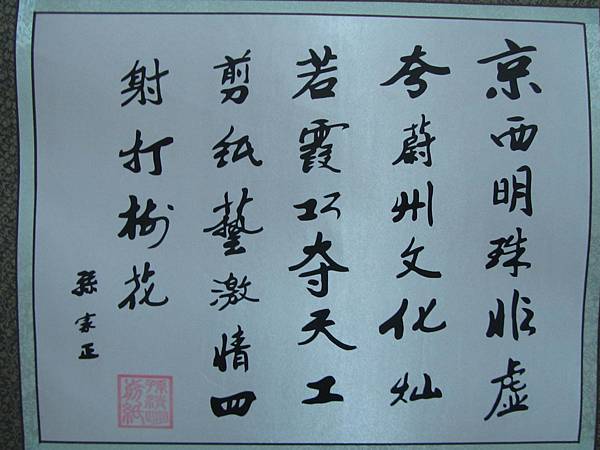 京西明珠非虚
夸蔚州文化灿
若霞巧夺天工
剪纸藝激情四
射打树花
孫家正